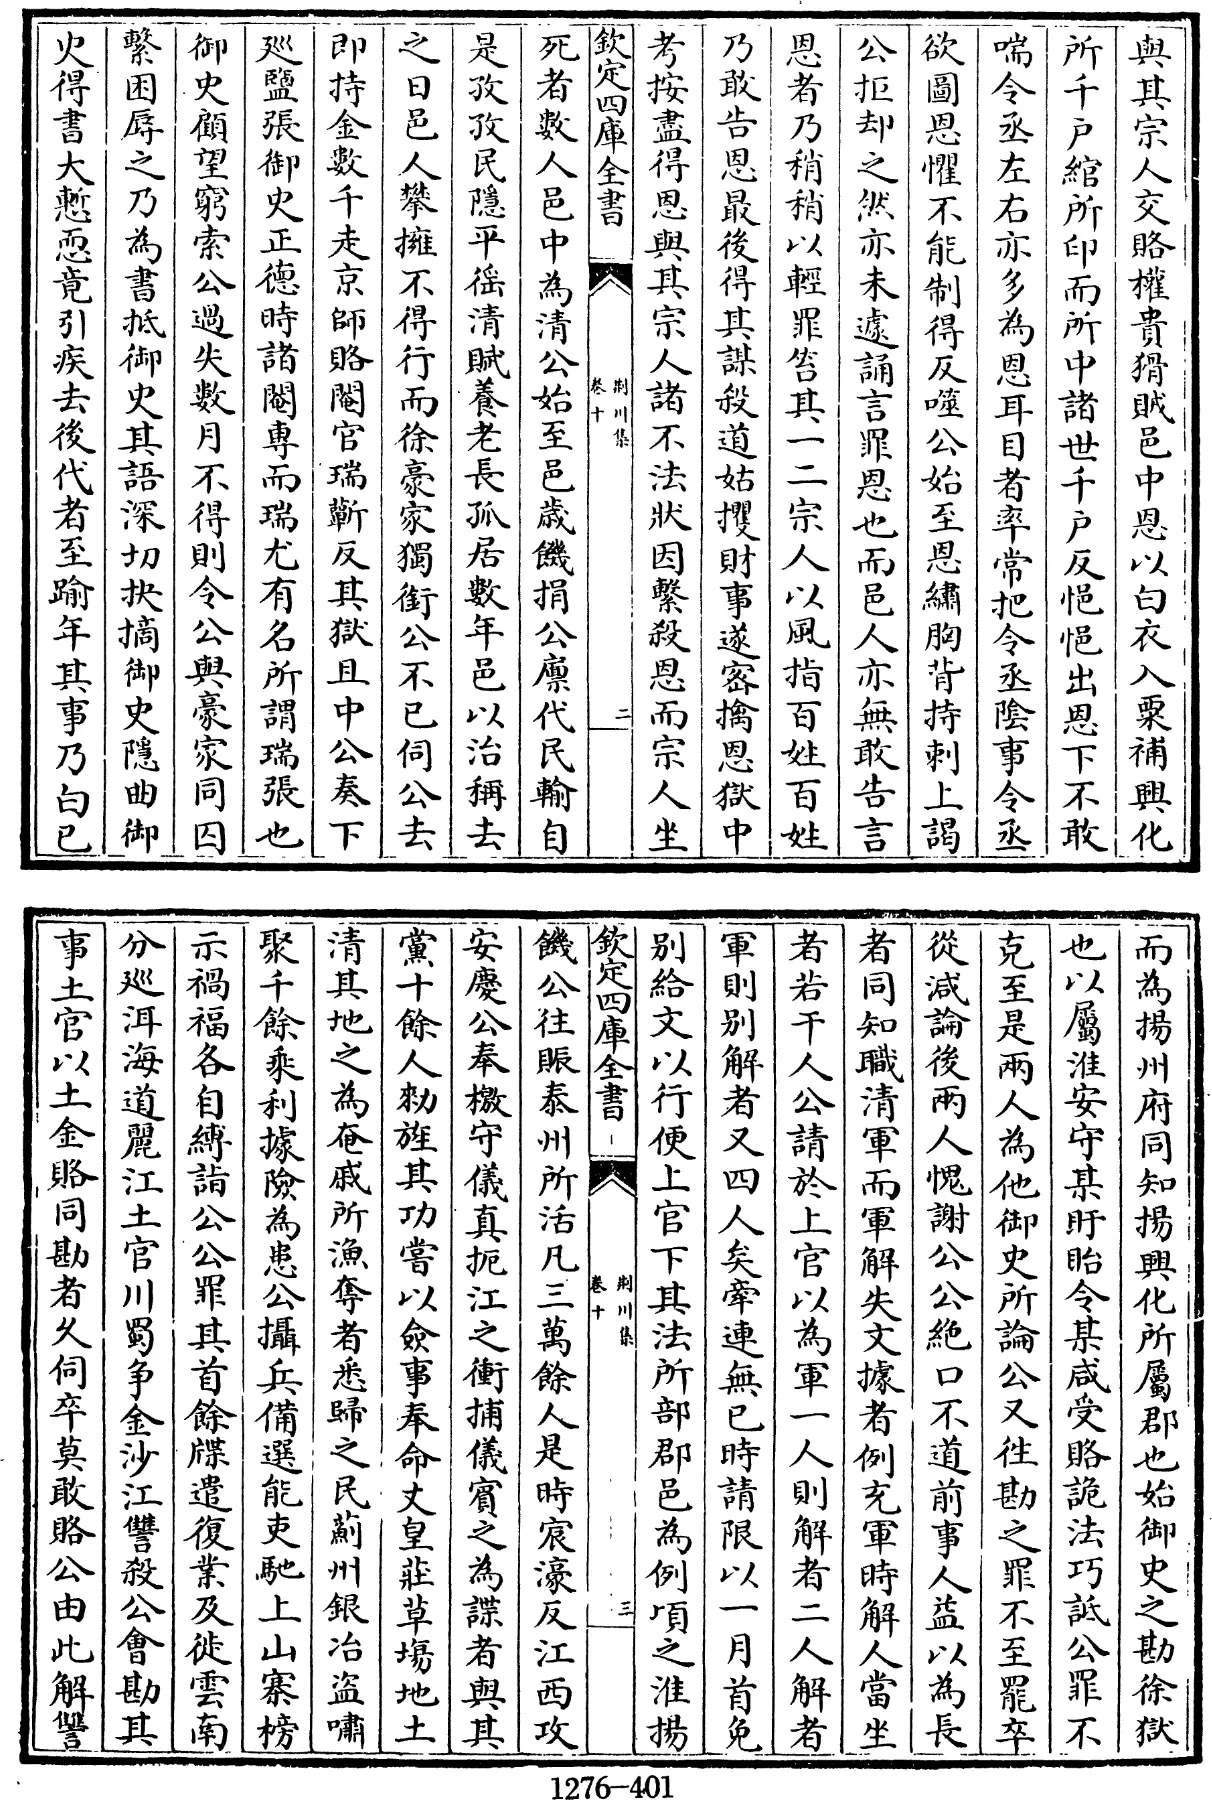 與其宗人交賂權貴猾賊邑中恩以白衣入粟補興化
所千户綰所印而所中諸世千户反悒悒出恩下不敢
喘令丞左右亦多為恩耳目者率常把令丞陰事令丞
欲圖恩懼不能制得反噬公始至恩繡胸背持刺上謁
公拒却之然亦未遽誦言罪恩也而邑人亦無敢告言
恩者乃稍稍以輕罪笞其一二宗人以風指百姓百姓
乃敢告恩最後得其謀殺道姑攫財事遂密擒恩獄中
考按盡得恩與其宗人諸不法狀因繫殺恩而宗人坐
欽定四庫全書 荆川集 卷十 二
死者數人邑中為清公始至邑歲饑捐公廪代民輸自
是孜孜民隱平徭清賦養老長孤居數年邑以治稱去
之日邑人攀擁不得行而徐豪家獨銜公不已伺公去
即持金數千走京師賂閹官瑞蘄反其獄且中公奏下
廵鹽張御史正德時諸閹專而瑞尤有名所謂瑞張也
御史顧望窮索公過失數月不得則令公與豪家同囚
繫困辱之乃為書抵御史其語深切抉摘御史隱曲御
史得書大慙恧竟引疾去後代者至踰年其事乃白已
而為揚州府同知揚興化所屬郡也始御史之勘徐獄
也以屬淮安守某盱眙令某咸受賂詭法巧詆公罪不
克至是兩人為他御史所論公又徃勘之罪不至罷卒
從減論後兩人愧謝公公絶口不道前事人益以為長
者同知職清軍而軍解失文據者例充軍時解人當坐
者若干人公請於上官以為軍一人則解者二人解者
軍則别解者又四人矣牽連無已時請限以一月首免
别給文以行便上官下其法所部郡邑為例頃之淮揚
欽定四庫全書 荆川集 卷十 三
饑公往賑泰州所活凡三萬餘人是時宸濠反江西攻
安慶公奉檄守儀真扼江之衝捕儀賓之為諜者與其
黨十餘人勑旌其功嘗以僉事奉命丈皇莊草塲地土
清其地之為奄戚所漁奪者悉歸之民薊州銀冶盜嘯
聚千餘乘利據險為患公攝兵備選能吏馳上山寨榜
示禍福各自縛詣公公罪其首餘牒遣復業及徙雲南
分廵洱海道麗江土官川蜀争金沙江讐殺公會勘其
事土官以土金賂同勘者乆伺卒莫敢賂公由此解讐
1276-401